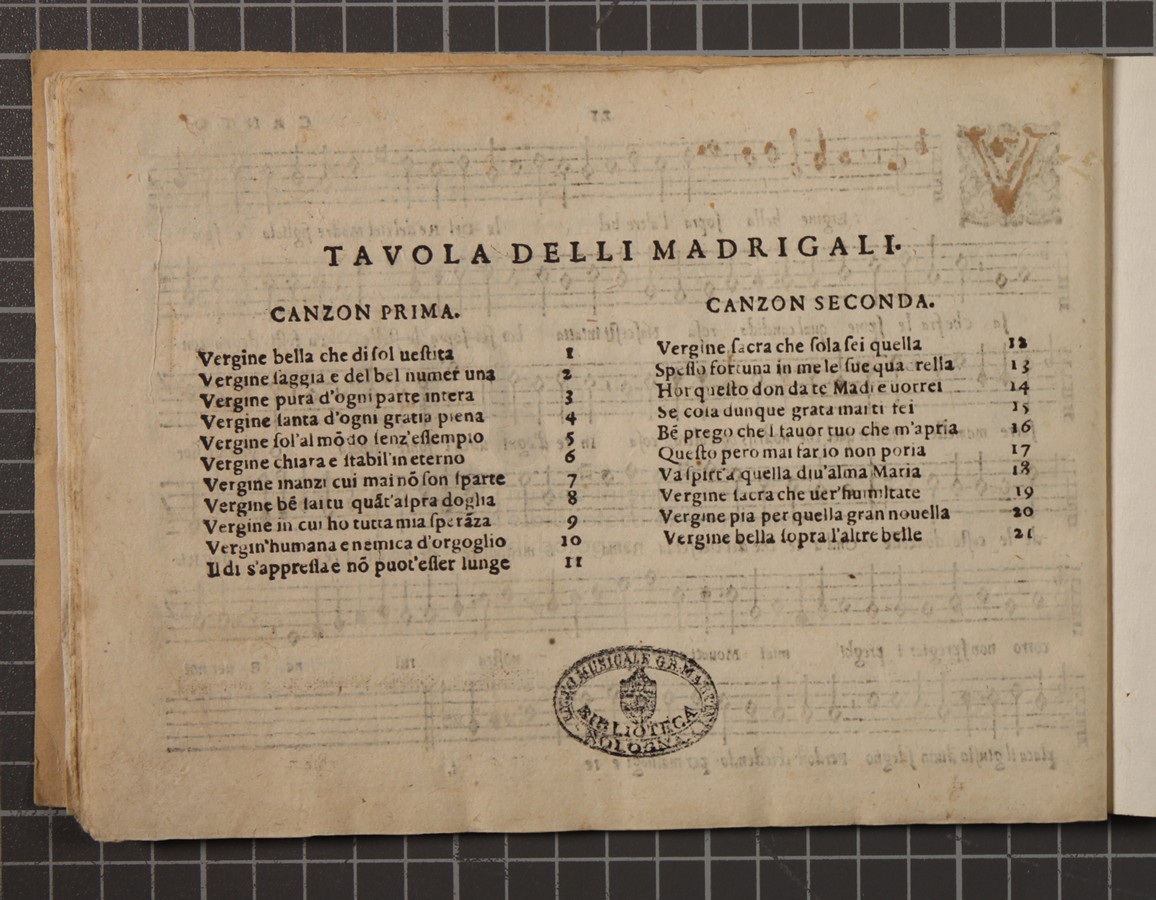 TAVOLA DELLI MADRIGALI.
CANZON PRIMA.
Vergine bella che di ſol ueſtita 1
Vergine ſaggia e del bel numer una 2
Vergine pura d'ogni parte intera 3
Vergine ſanta d'ogni gratia piena 4
Vergine ſol'al mõdo ſenz'eſſempio 5
Vergine chiara e ſtabil'in eterno 6
Vergine inanzi cui mai nõ ſon ſparte 7
Vergine bẽ ſai tu quãt'aſpra doglia 8
Vergine in cui ho tutta mia ſperãza 9
Vergin'humana e nemica d'orgoglio 10
Il di s'appreſſa e nõ puot'eſſer lunge 11
CANZON SECONDA.
Vergine ſacra che ſola ſei quella 12
Speſſo fortuna in me le ſue qua rella 13
Hor queſto don da te Madre uorrei 14
Se coſa dunque grata mai ti fei 15
Bẽ prego che l fauor tuo che m'apria 16
Queſto pero mai far io non poria 17
Va ſpirt'a quella diu'alma Maria 18
Vergine ſacra che uer'humiltate 19
Vergine pia per quella gran nouella 20
Vergine bella ſopra l'altre belle 21
LICEO MUSICALE G.B. MARTINI
BIBLIOTECA
BOLOGNA